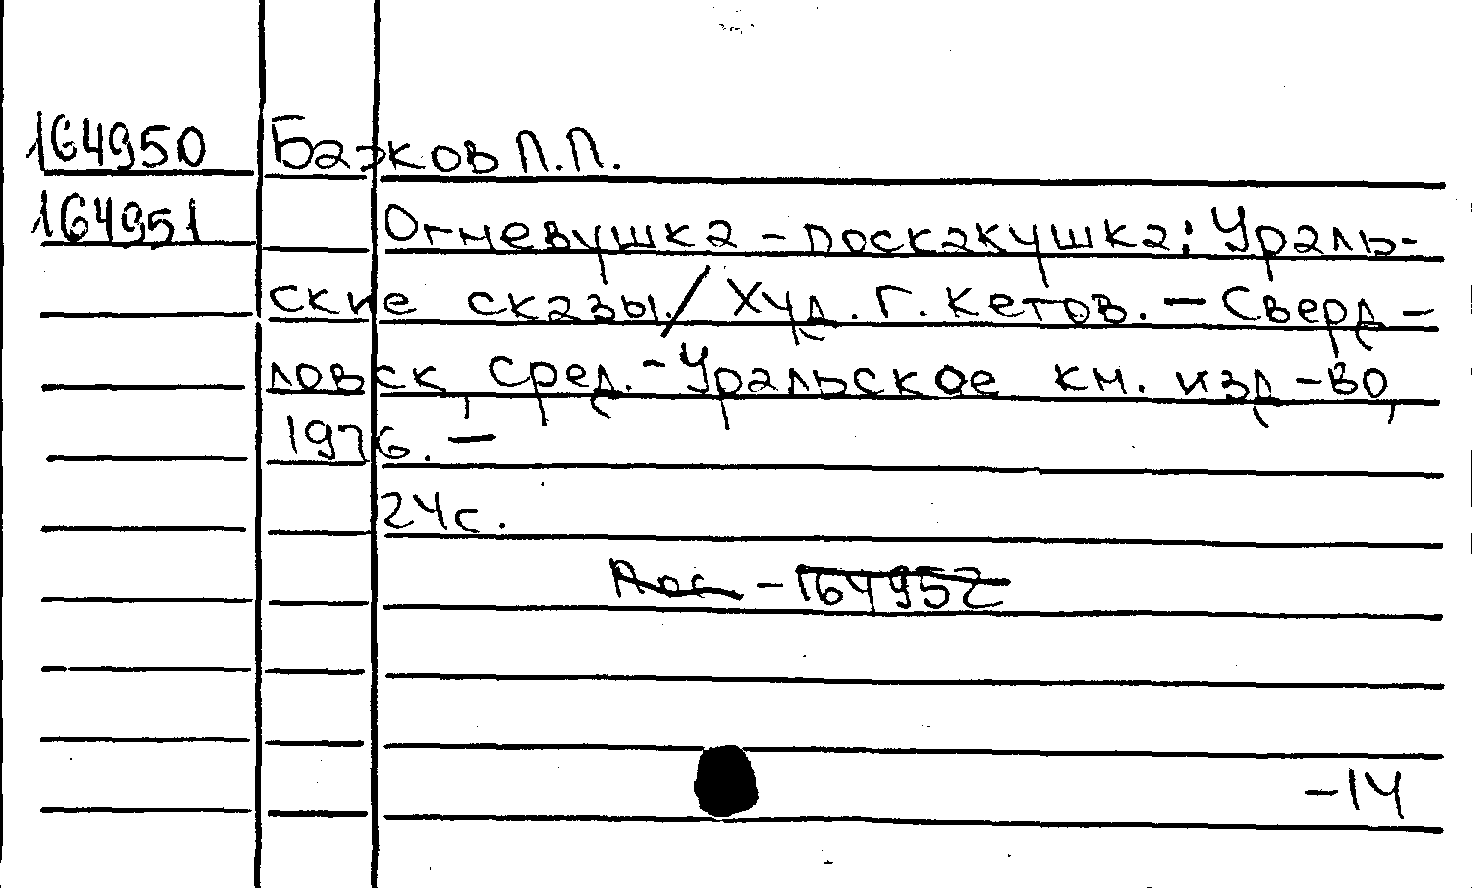 164950 Бажков П.П.
164951 Огневушка-поскакушка: Ураль-
ские сказы./Худ. Г. Кетов. — Сверд-
ловск, Сред.-Уральское кн. изд-во,
1976. —
24с.
- 164952
-14